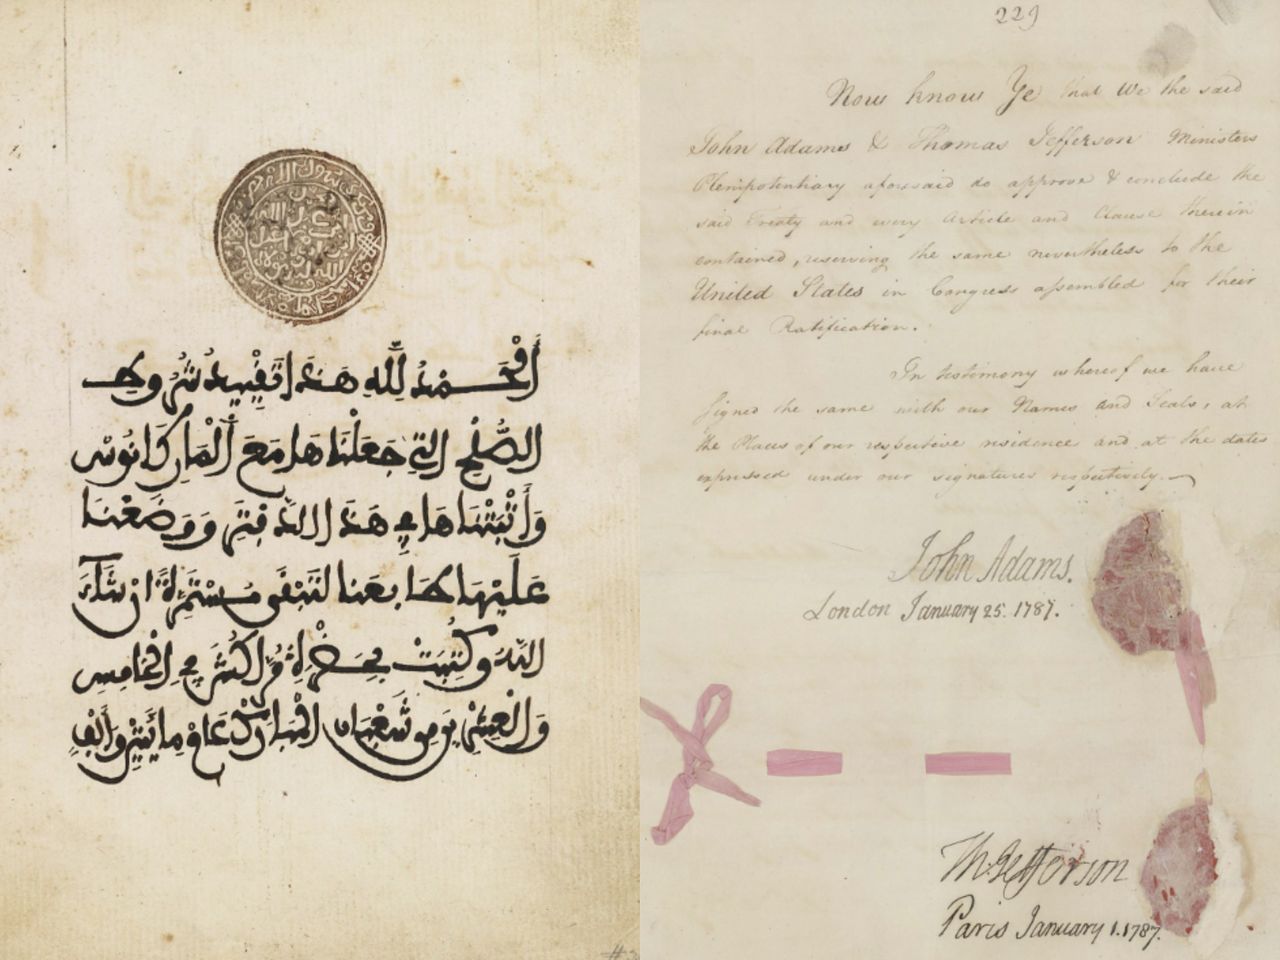 الحمد لله هذا تقييد شروط
الصلح التي جعلناها مع الماركانوس
وأثبتناها في هذا الدفتر ووضعنا
عليها طابعنا لتبقى مستمرة إن شاء
الله وكتبت بحضرة مراكش في الخامس
والعشرين من شعبان المبارك عام مائتين وألف
229
Now know Ye that We the said
John Adams & Thomas Jefferson Ministers
Plenipotentiary aforesaid do approve & conclude the
said Treaty and every Article and Clause therein
contained, reserving the same nevertheless to the
United States in Congress assembled for their
final Ratification.
In testimony whereof we have
signed the same with our Names and Seals, at
the Places of our respective residence and at the dates
expressed under our signatures respectively.
John Adams.
London January 25. 1787.
Th: Jefferson
Paris January 1. 1787.